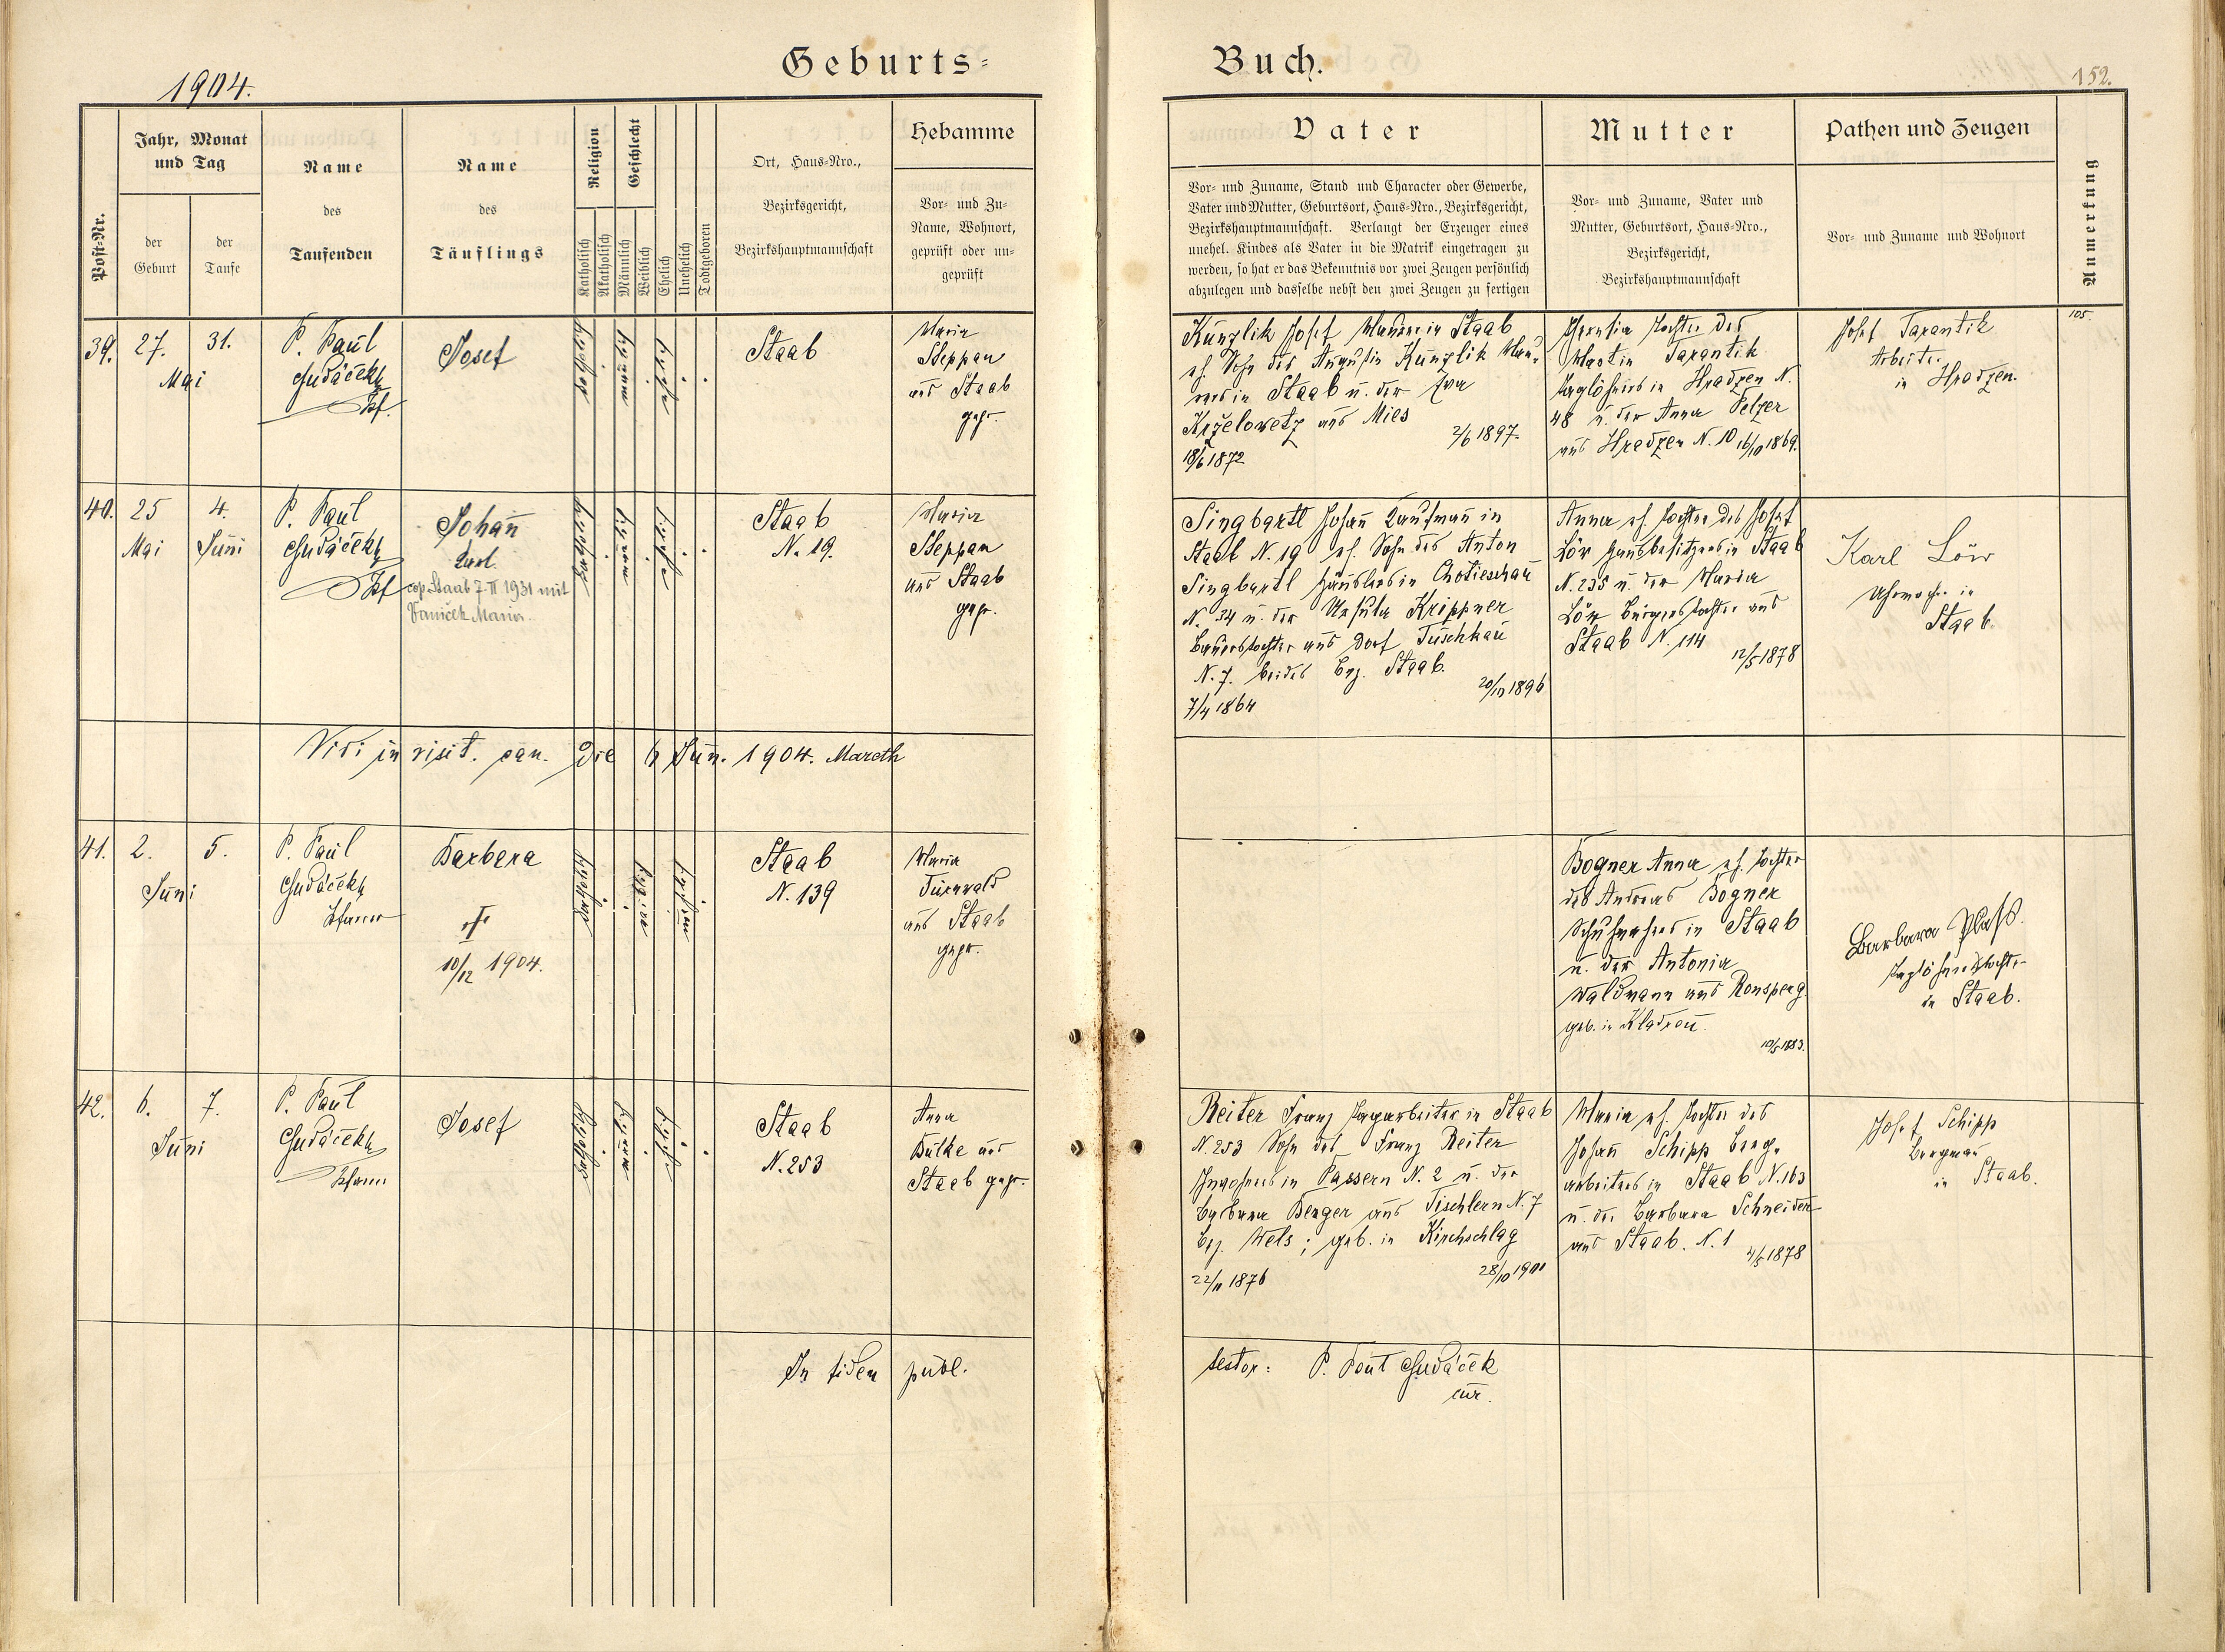 1904.
Geburts-
Buch.
152.
Post-Nr.
Jahr, Monat
und Tag
der
Geburt
der
Taufe
Name
des
Taufenden
Name
des
Täuflings
Religion
Katholisch
Akatholisch
Geschlecht
Männlich
Weiblich
Ehelich
Unehelich
Todtgeboren
Ort, Haus-Nro.,
Bezirksgericht,
Bezirkshauptmannschaft
Hebamme
Vor- und Zu-
Name, Wohnort,
geprüft oder un-
geprüft
Vater
Vor- und Zuname, Stand und Character oder Gewerbe,
Vater und Mutter, Geburtsort, Haus-Nro., Bezirksgericht,
Bezirkshauptmannschaft. Verlangt der Erzeuger eines
unehel. Kindes als Vater in die Matrik eingetragen zu
werden, so hat er das Bekenntnis vor zwei Zeugen persönlich
abzulegen und dasselbe nebst den zwei Zeugen zu fertigen
Mutter
Vor- und Zuname, Vater und
Mutter, Geburtsort, Haus-Nro.,
Bezirksgericht,
Bezirkshauptmannschaft
Pathen und Zeugen
Vor- und Zuname und Wohnort
Anmerkung
39.
27.
31.
Mai
P. Paul
Josef
Staab
Maria
Steppan
aus Staab
gepr.
Künzlik Josef Maurer in Staab
eh. Sohn des Augustin Künzlik Mau-
rers in Staab u. der Eva
Krželowetz aus Mies
2/6 1897.
18/6 1872
Theresia Tochter des
Martin Tarantik
Taglöhners in Hradzen N.
48 u. der Anna Pelzer
aus Hradzen N. 10 16/10 1869.
Josef Tarantik
Arbeiter
in Hradzen.
105.
40.
25
Mai
4.
Juni
P. Paul
Johann
Karl.
cop. Staab 7. II 1931 mit
Vaniček Maria.
Staab
N. 19.
Maria
Steppan
aus Staab
gepr.
Singbartl Johann Kaufmann in
Staab N. 19 eh. Sohn des Anton
Singbartl Häuslers in Chotieschau
N. 34 u. der Ursula Krippner
Bauerstochter aus Dorf Tuschkau
N. 7. beides Bez. Staab.
20/10 1896
7/4 1864
Anna eh. Tochter des Josef
Löw Hausbesitzers in Staab
N. 235 u. der Maria
Löw Bürgerstochter aus
Staab N. 114
12/5 1878
Karl Löw
Uhrmacher in
Staab.
Vidi in visit. can. die 6 Jun. 1904. Mareth
41.
2.
5.
Juni
P. Paul
Pfarrer
Barbara
†
10/12 1904.
Staab
N. 139
Maria
Türwald
aus Staab
gepr.
Bogner Anna eh. Tochter
des Andreas Bogner
Schuhmachers in Staab
u. der Antonia
Waldmann aus Ronsperg
geb. in Kladrau.
10/5 1883.
Barbara Plass.
Taglöhnerstochter
in Staab.
42.
6.
7.
Juni
P. Paul
Pfarrer
Josef
Staab
N. 253
Anna
Bülke aus
Staab gepr.
Reiter Franz Tagarbeiter in Staab
N. 253 Sohn des Franz Reiter
Inwohners in Passern N. 2 u. der
Barbara Berger aus Tischlern N. 7
Bez. Wels; geb. in Kirchschlag
28/10 1901
22/11 1876
Maria eh. Tochter des
Johann Schipp Berg-
arbeiters in Staab N. 163
u. der Barbara Schneider
aus Staab. N. 1
4/5 1878
Josef Schipp
Bergmann
in Staab.
In fidem publ.
testor: P. Paul
cur.